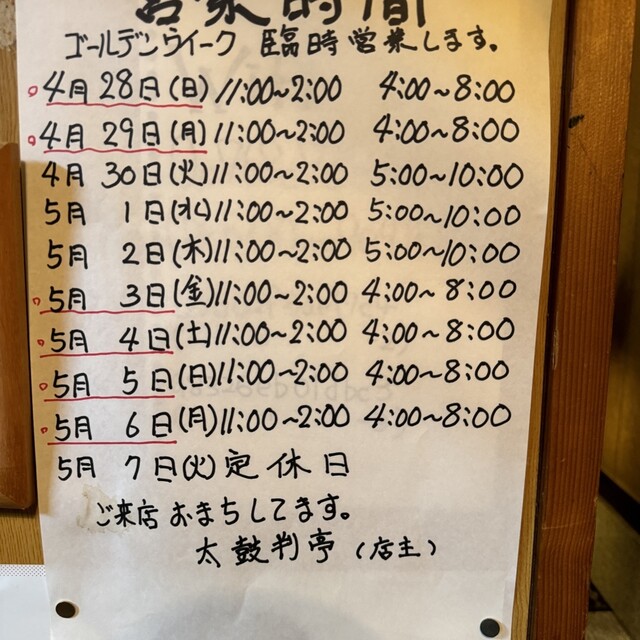 営業時間
ゴールデンウイーク 臨時営業します。
4月28日(日) 11:00~2:00 4:00~8:00
4月29日(月) 11:00~2:00 4:00~8:00
4月30日(火) 11:00~2:00 5:00~10:00
5月 1日(水) 11:00~2:00 5:00~10:00
5月 2日(木) 11:00~2:00 5:00~10:00
5月 3日(金) 11:00~2:00 4:00~8:00
5月 4日(土) 11:00~2:00 4:00~8:00
5月 5日(日) 11:00~2:00 4:00~8:00
5月 6日(月) 11:00~2:00 4:00~8:00
5月 7日(火) 定休日
ご来店おまちしてます。
太鼓判亭(店主)